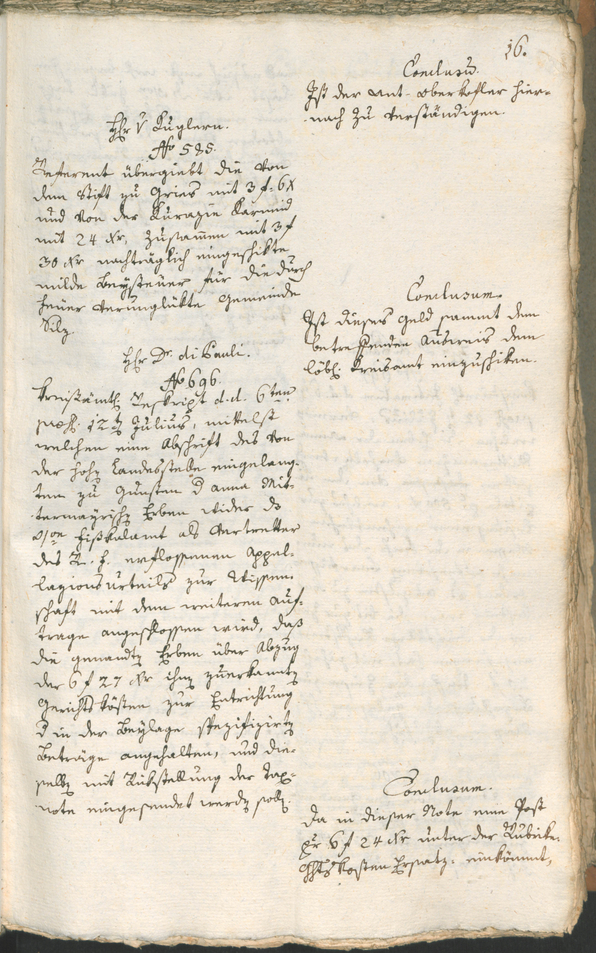 16.
Conclusum.
Ist der Ant. Oberkofler hier-
nach zu verständigen.
Hhr v Kuglern.
No 595.
Referent übergiebt die von
dem Stift zu Gries mit 3 f. 6 x
und von der Kurazie Karneid
mit 24 Xr, zusam̄en mit 3 f
30 Xr nachträglich eingeschikte
milde Beysteüer für die durch
Feüer verunglükte Gemeinde
Silz.
Conclusum.
Ist dieses Geld sammt dem
betreffenden Ausweis dem
löbl. Kreisamt einzuschiken.
Hhr Dr. di Pauli.
No 696.
Kreisämtl. Reskript d.d. 6ten
praes. 12ten Julius, mittelst
welchen eine Abschrift des von
der hohen Landesstelle eingelang-
ten zu Gunsten d Anna Mit-
termayrischen Erben wider das
Fiskalamt als Vertretter
des R. f. erflossenen Appel-
lazionsurteils zur Wissen-
schaft mit dem weiteren Auf-
trage angeschlossen wird, daß
die genanten Erben über Abzug
der 6 f 27 Xr ihnen zuerkanten
Gerichtskösten zur Entrichtung
d in der Beylage spezifizirten
Beträge angehalten, und die-
selben mit Rükstellung der Tax-
note eingesendet werden sollen.
Conclusum.
Da in dieser Note eine Post
pr 6 f 24 Xr unter der Rubrike
Ghtskosten Ersatz: einkömmt,